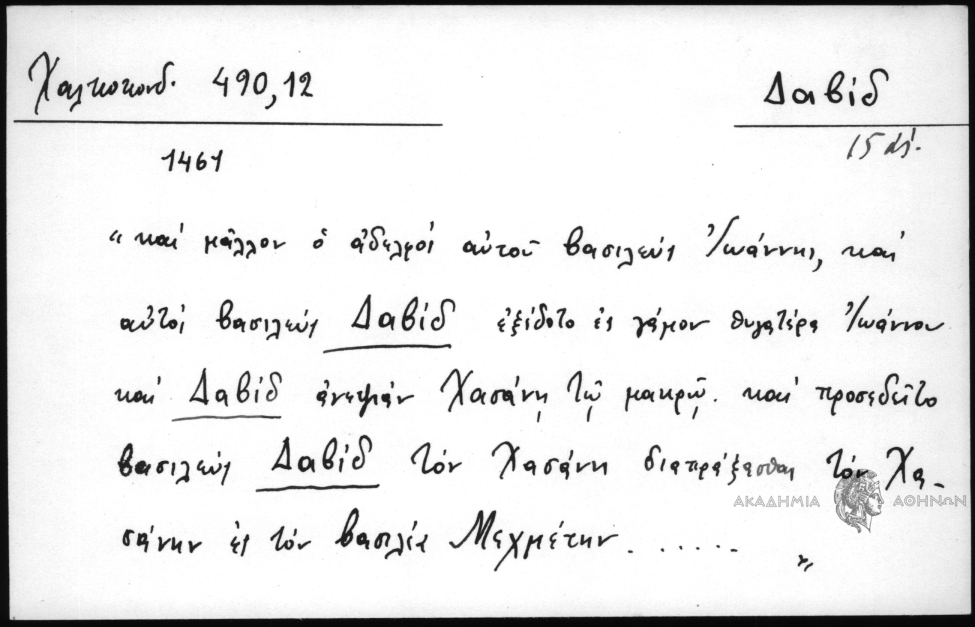 Χαλκοκονδ. 490,12
Δαβίδ
1461
15 αἰ.
"καὶ μᾶλλον ὁ ἀδελφὸς αὐτοῦ βασιλεὺς Ἰωάννης, καὶ
αὐτὸς βασιλεὺς Δαβίδ ἐξέδοτο ἐς γάμον θυγατέρα Ἰωάννου
καὶ Δαβίδ ἀνεψιὰν Χασάνῃ τῷ μακρῷ. καὶ προσεδεῖτο
βασιλεὺς Δαβίδ τὸν Χασάνη διαπράξασθαι τὸν Χα-
σάνην ἐς τὸν βασιλέα Μεχμέτην . . . . . . "
ΑΚΑΔΗΜΙΑ ΑΘΗΝΩΝ